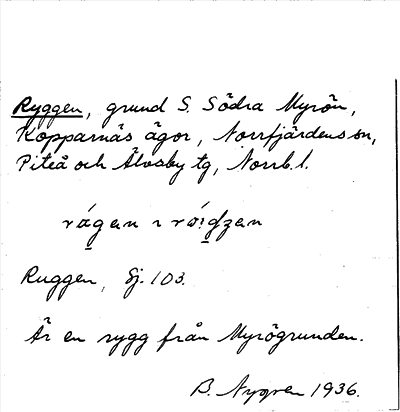 Ryggen, grund S. Södra Myrön,
Kopparnäs ägor, Norrfjärdens sn,
Piteå och Älvsby tg, Norrb. l.
Ruggen, Sj. 103.
Är en rygg från Myrögrunden.
B. Nygren 1936.